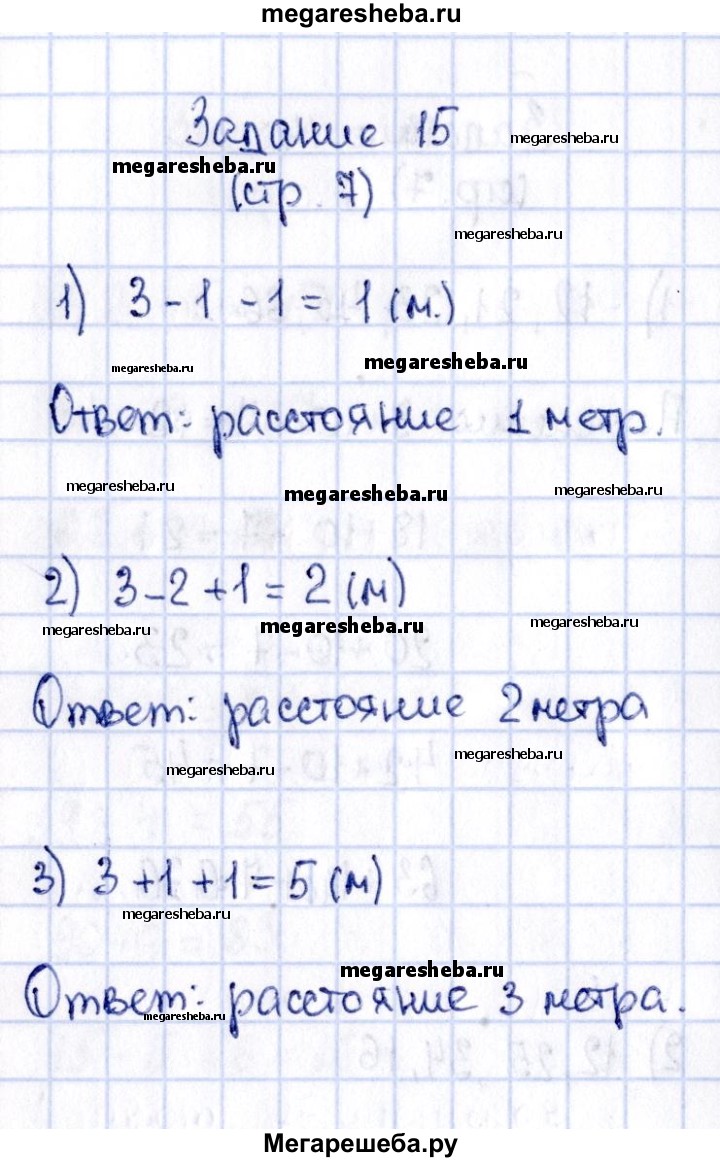 megaresheba.ru
Задание 15
megaresheba.ru
megaresheba.ru
(стр. 7)
megaresheba.ru
1) 3 - 1 - 1 = 1 (м.)
megaresheba.ru
megaresheba.ru
Ответ: расстояние 1 метр.
megaresheba.ru
megaresheba.ru
megaresheba.ru
2) 3 - 2 + 1 = 2 (м)
megaresheba.ru
megaresheba.ru
megaresheba.ru
Ответ: расстояние 2 метра
megaresheba.ru
megaresheba.ru
3) 3 + 1 + 1 = 5 (м)
megaresheba.ru
megaresheba.ru
Ответ: расстояние 3 метра.
megaresheba.ru
Мегарешеба.ру